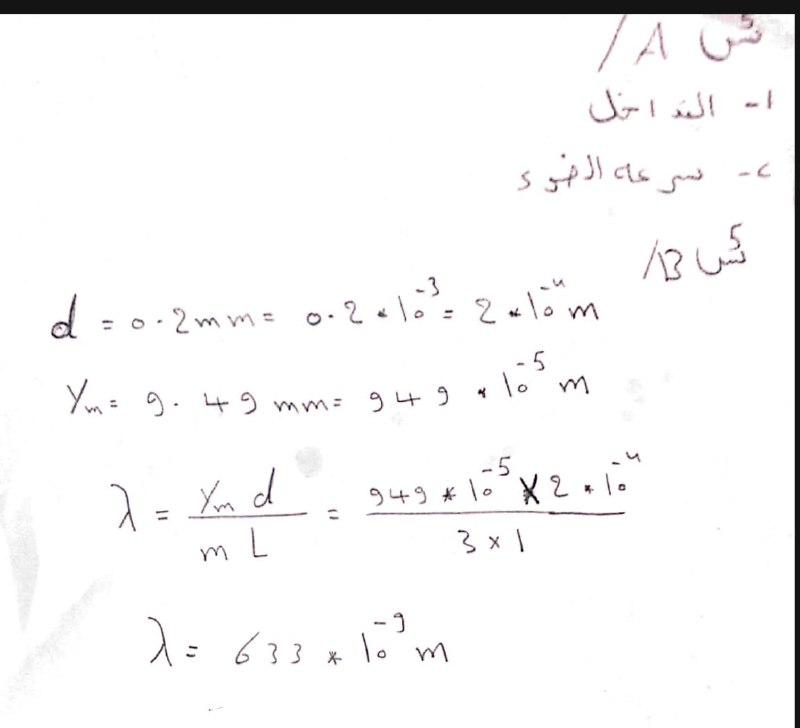 س A /
١- التداخل
٢- سرعة الضوء
س5 B/
d = 0.2mm = 0.2 * 10^-3 = 2 * 10^-4 m
Ym = 9.49 mm = 949 * 10^-5 m
λ = Ym d / m L = 949 * 10^-5 × 2 * 10^-4 / 3 × 1
λ = 633 * 10^-9 m